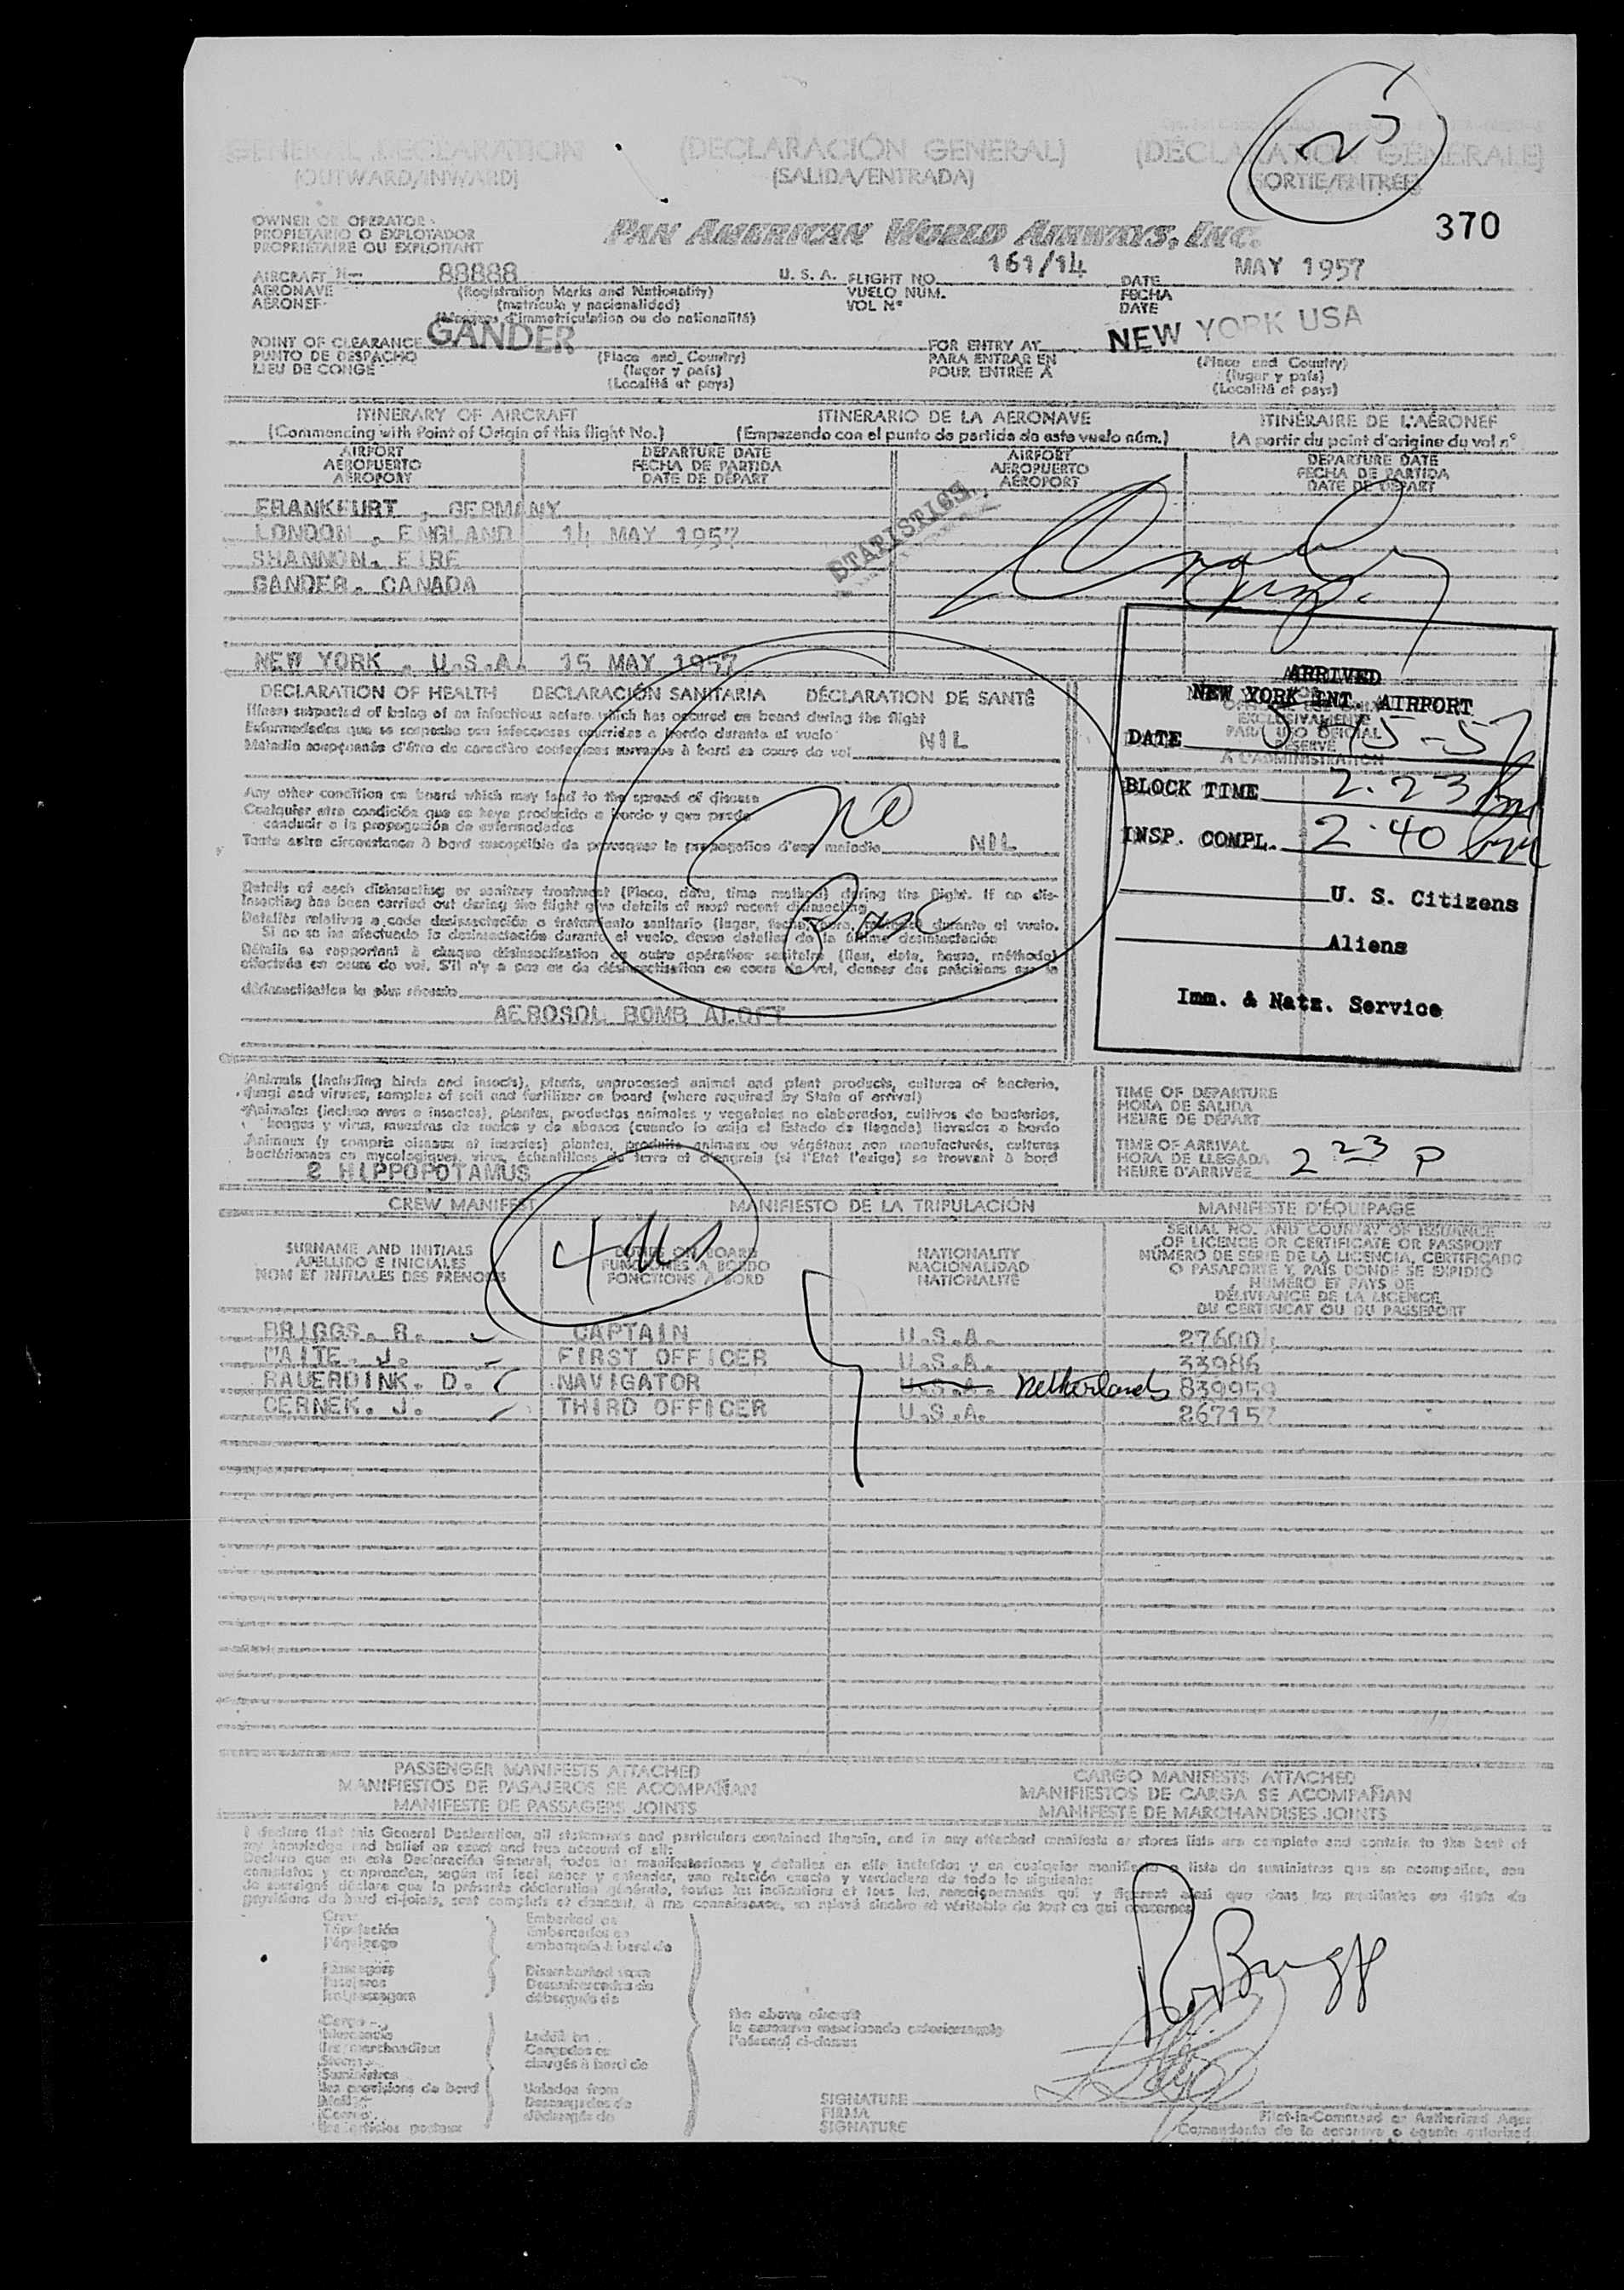 GENERAL DECLARATION (DECLARACIÓN GENERAL) (DÉCLARATION GÉNÉRALE)
(OUTWARD/INWARD) (SALIDA/ENTRADA) (SORTIE/ENTRÉE)
OWNER OR OPERATOR
PROPIETARIO O EXPLOTADOR
PROPRIÉTAIRE OU EXPLOITANT
PAN AMERICAN WORLD AIRWAYS, INC.
370
AIRCRAFT N- 88888 U. S. A. FLIGHT NO. 161/14 DATE MAY 1957
AERONAVE (Registration Marks and Nationality) VUELO NÚM. FECHA
AÉRONEF (matrícula y nacionalidad) VOL Nº DATE
(Marques d'immatriculation ou de nationalité)
POINT OF CLEARANCE GANDER FOR ENTRY AT NEW YORK USA
PUNTO DE DESPACHO (Place and Country) PARA ENTRAR EN (Place and Country)
LIEU DE CONGÉ (lugar y país) POUR ENTRÉE À (lugar y país)
(Localité et pays) (Localité et pays)
ITINERARY OF AIRCRAFT ITINERARIO DE LA AERONAVE ITINÉRAIRE DE L'AÉRONEF
(Commencing with Point of Origin of this flight No.) (Empezando con el punto de partida de este vuelo núm.) (A partir du point d'origine du vol nº
AIRPORT DEPARTURE DATE AIRPORT DEPARTURE DATE
AEROPUERTO FECHA DE PARTIDA AEROPUERTO FECHA DE PARTIDA
AÉROPORT DATE DE DÉPART AÉROPORT DATE DE DÉPART
FRANKFURT , GERMANY
LONDON , ENGLAND 14 MAY 1957
SHANNON, EIRE
GANDER, CANADA
STATISTICS
NEW YORK , U.S.A. 15 MAY 1957
DECLARATION OF HEALTH DECLARACIÓN SANITARIA DÉCLARATION DE SANTÉ
Illness suspected of being of an infectious nature which has occured on board during the flight
Enfermedades que se sospecha son infecciosas ocurridas a bordo durante el vuelo NIL
Maladie soupçonnée d'être de caractère contagieux survenue à bord au cours de vol
Any other condition on board which may lead to the spread of disease
Cualquier otra condición que se haya producido a bordo y que pueda
conducir a la propagación de enfermedades
Toute autre circonstance à bord susceptible de provoquer la propagation d'une maladie NIL
no
Details of each disinsecting or sanitary treatment (Place, date, time method) during the flight. If no dis-
insecting has been carried out during the flight give details of most recent disinsecting
Detalles relativos a cada desinsectación o tratamiento sanitario (lugar, fecha, hora, método) durante el vuelo.
Si no se ha efectuado la desinsectación durante el vuelo, dense detalles de la última desinsectación
Détails se rapportant à chaque désinsectisation ou autre opération sanitaire (lieu, date, heure, méthode)
effectués en cours de vol. S'il n'y a pas eu de désinsectisation en cours de vol, donner des précisions sur la
désinsectisation la plus récente
AEROSOL BOMB ALOFT
ARRIVED
NEW YORK INT. AIRPORT
EXCLUSIVAMENTE
PARA USO OFICIAL
RÉSERVÉ
A L'ADMINISTRATION
DATE 5-15-57
BLOCK TIME 2.23 pm
INSP. COMPL. 2.40 pm
U. S. Citizens
Aliens
Imm. & Natz. Service
Animals (including birds and insects), plants, unprocessed animal and plant products, cultures of bacteria,
fungi and viruses, samples of soil and fertilizer on board (where required by State of arrival)
Animales (incluso aves e insectos), plantas, productos animales y vegetales no elaborados, cultivos de bacterias,
hongos y virus, muestras de suelos y de abonos (cuando lo exija el Estado de llegada) llevados a bordo
Animaux (y compris oiseaux et insectes) plantes, produits animaux ou végétaux non manufacturés, cultures
bactériennes ou mycologiques, virus, échantillons de terre et d'engrais (si l'Etat l'exige) se trouvant à bord
2 HIPPOPOTAMUS
TIME OF DEPARTURE
HORA DE SALIDA
HEURE DE DÉPART
TIME OF ARRIVAL
HORA DE LLEGADA 2 23 P
HEURE D'ARRIVÉE
CREW MANIFEST MANIFIESTO DE LA TRIPULACIÓN MANIFESTE D'ÉQUIPAGE
SURNAME AND INITIALS
APELLIDO E INICIALES
NOM ET INITIALES DES PRÉNOMS
DUTIES ON BOARD
FUNCIONES A BORDO
FONCTIONS À BORD
4 us
NATIONALITY
NACIONALIDAD
NATIONALITÉ
SERIAL NO. AND COUNTRY OF ISSUANCE
OF LICENCE OR CERTIFICATE OR PASSPORT
NÚMERO DE SERIE DE LA LICENCIA, CERTIFICADO
O PASAPORTE Y PAÍS DONDE SE EXPIDIÓ
NUMÉRO ET PAYS DE
DÉLIVRANCE DE LA LICENCE,
DU CERTIFICAT OU DU PASSEPORT
BRIGGS, R. CAPTAIN U.S.A. 276004
WAITE, J. FIRST OFFICER U.S.A. 33986
RAUERDINK, D. NAVIGATOR U.S.A. Netherlands 839959
CERNEK, J. THIRD OFFICER U.S.A. 267157
PASSENGER MANIFESTS ATTACHED CARGO MANIFESTS ATTACHED
MANIFIESTOS DE PASAJEROS SE ACOMPAÑAN MANIFIESTOS DE CARGA SE ACOMPAÑAN
MANIFESTE DE PASSAGERS JOINTS MANIFESTE DE MARCHANDISES JOINTS
I declare that this General Declaration, all statements and particulars contained therein, and in any attached manifests or stores lists are complete and contain to the best of
my knowledge and belief an exact and true account of all:
Declaro que en esta Declaración General, todas las manifestaciones y detalles en ella incluídos y en cualquier manifiesto o lista de suministros que se acompañe, son
completos y comprenden, según mi leal saber y entender, una relación exacta y verdadera de todo lo siguiente:
Je soussigné déclare que la présente déclaration générale, toutes les indications et tous les renseignements qui y figurent ainsi que dans les manifestes ou états de
provisions de bord ci-joints, sont complets et donnent, à ma connaissance, un relevé sincère et véritable de tout ce qui concerne:
Crew
Tripulación
l'équipage
Embarked on
Embarcados en
embarqués à bord de
Passagers
Pasajeros
les passagers
Disembarked from
Desembarcados de
débarqués de
Cargo
Mercancía
les marchandises
Stores
Suministros
les provisions de bord
Mail
Correo
les articles postaux
Laded on
Cargados en
chargés à bord de
Unladen from
Descargados de
déchargés de
the above aircraft
la aeronave mencionada anteriormente
l'aéronef ci-dessus
R Briggs
SIGNATURE
FIRMA
SIGNATURE
Pilot-in-Command or Authorized Agent
Comandante de la aeronave o agente autorizad